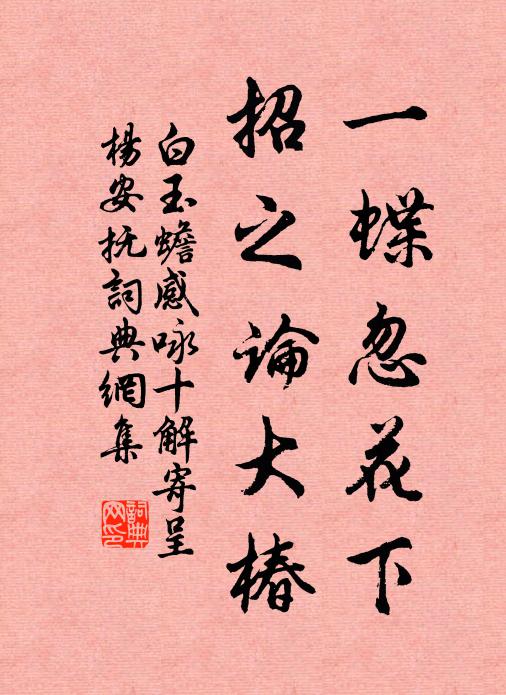 一蝶忽花下
招之論大椿
白玉蟾感咏十解寄呈
楊安抚詞典網集
詞典
网印